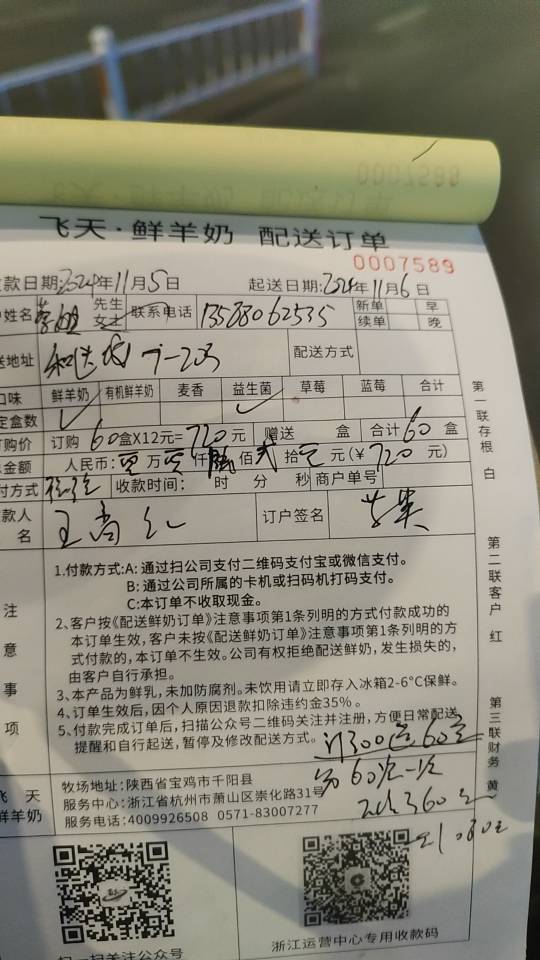 飞天·鲜羊奶 配送订单
0007589
款日期:2024年11月5日 起送日期:2024年11月6日
姓名 先生 女士 联系电话 13588062535 新单 早
续单 晚
送地址 7-203 配送方式
口味 鲜羊奶 有机鲜羊奶 麦香 益生菌 草莓 蓝莓 合计
定盒数 ✓ ✓
订购价 订购 60盒X12元=720元 赠送 盒 合计60盒
总金额 人民币: 零万零仟柒佰贰拾元(¥720元)
付方式 收款时间: 时 分 秒 商户单号
款人 名 王尚仁 订户签名
注意事项
1.付款方式:A: 通过扫公司支付二维码支付宝或微信支付。
B: 通过公司所属的卡机或扫码机打码支付。
C:本订单不收取现金。
2、客户按《配送鲜奶订单》注意事项第1条列明的方式付款成功的
本订单生效,客户未按《配送鲜奶订单》注意事项第1条列明的方
式付款的,本订单不生效。公司有权拒绝配送鲜奶,发生损失的,
由客户自行承担。
3、本产品为鲜乳,未加防腐剂。未饮用请立即存入冰箱2-6°C保鲜。
4、订单生效后,因个人原因退款扣除违约金35%。
5、付款完成订单后,扫描公众号二维码关注并注册,方便日常配送
提醒和自行起送,暂停及修改配送方式。
订300送60
360
飞天
鲜羊奶
牧场地址:陕西省宝鸡市千阳县
服务中心:浙江省杭州市萧山区崇化路31号
服务电话:4009926508 0571-83007277
扫一扫关注公众号
浙江运营中心专用收款码
第一联存根 白
第二联客户 红
第三联财务 黄